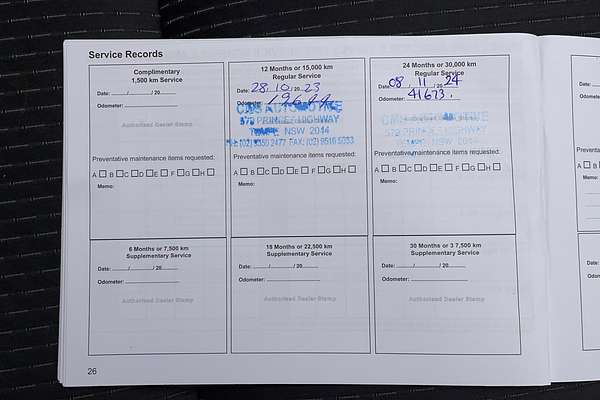 Service Records
Complimentary
1,500 km Service
Date: ....../....../ 20......
Odometer:
Authorised Dealer Stamp
Preventative maintenance items requested:
A B C D E F G H
Memo:
12 Months or 15,000 km
Regular Service
Date: 28 / 10 / 20 23
Odometer:
AUTOMOTIVE
579 PRINCES HIGHWAY
TEMPE NSW 2044
FAX: (02)
Preventative maintenance items requested:
A B C D E F G H
Memo:
24 Months or 30,000 km
Regular Service
Date: 08 / 11 / 20 24
Odometer: 41673.
579 PRINCES HIGHWAY
NSW 2044
Preventative maintenance items requested:
A B C D E F G H
Memo:
6 Months or 7,500 km
Supplementary Service
Date: ....../....../ 20......
Odometer:
Authorised Dealer Stamp
18 Months or 22,500 km
Supplementary Service
Date: ....../....../ 20......
Odometer:
Authorised Dealer Stamp
30 Months or 3 7,500 km
Supplementary Service
Date: ....../....../ 20......
Odometer:
Authorised Dealer Stamp
26